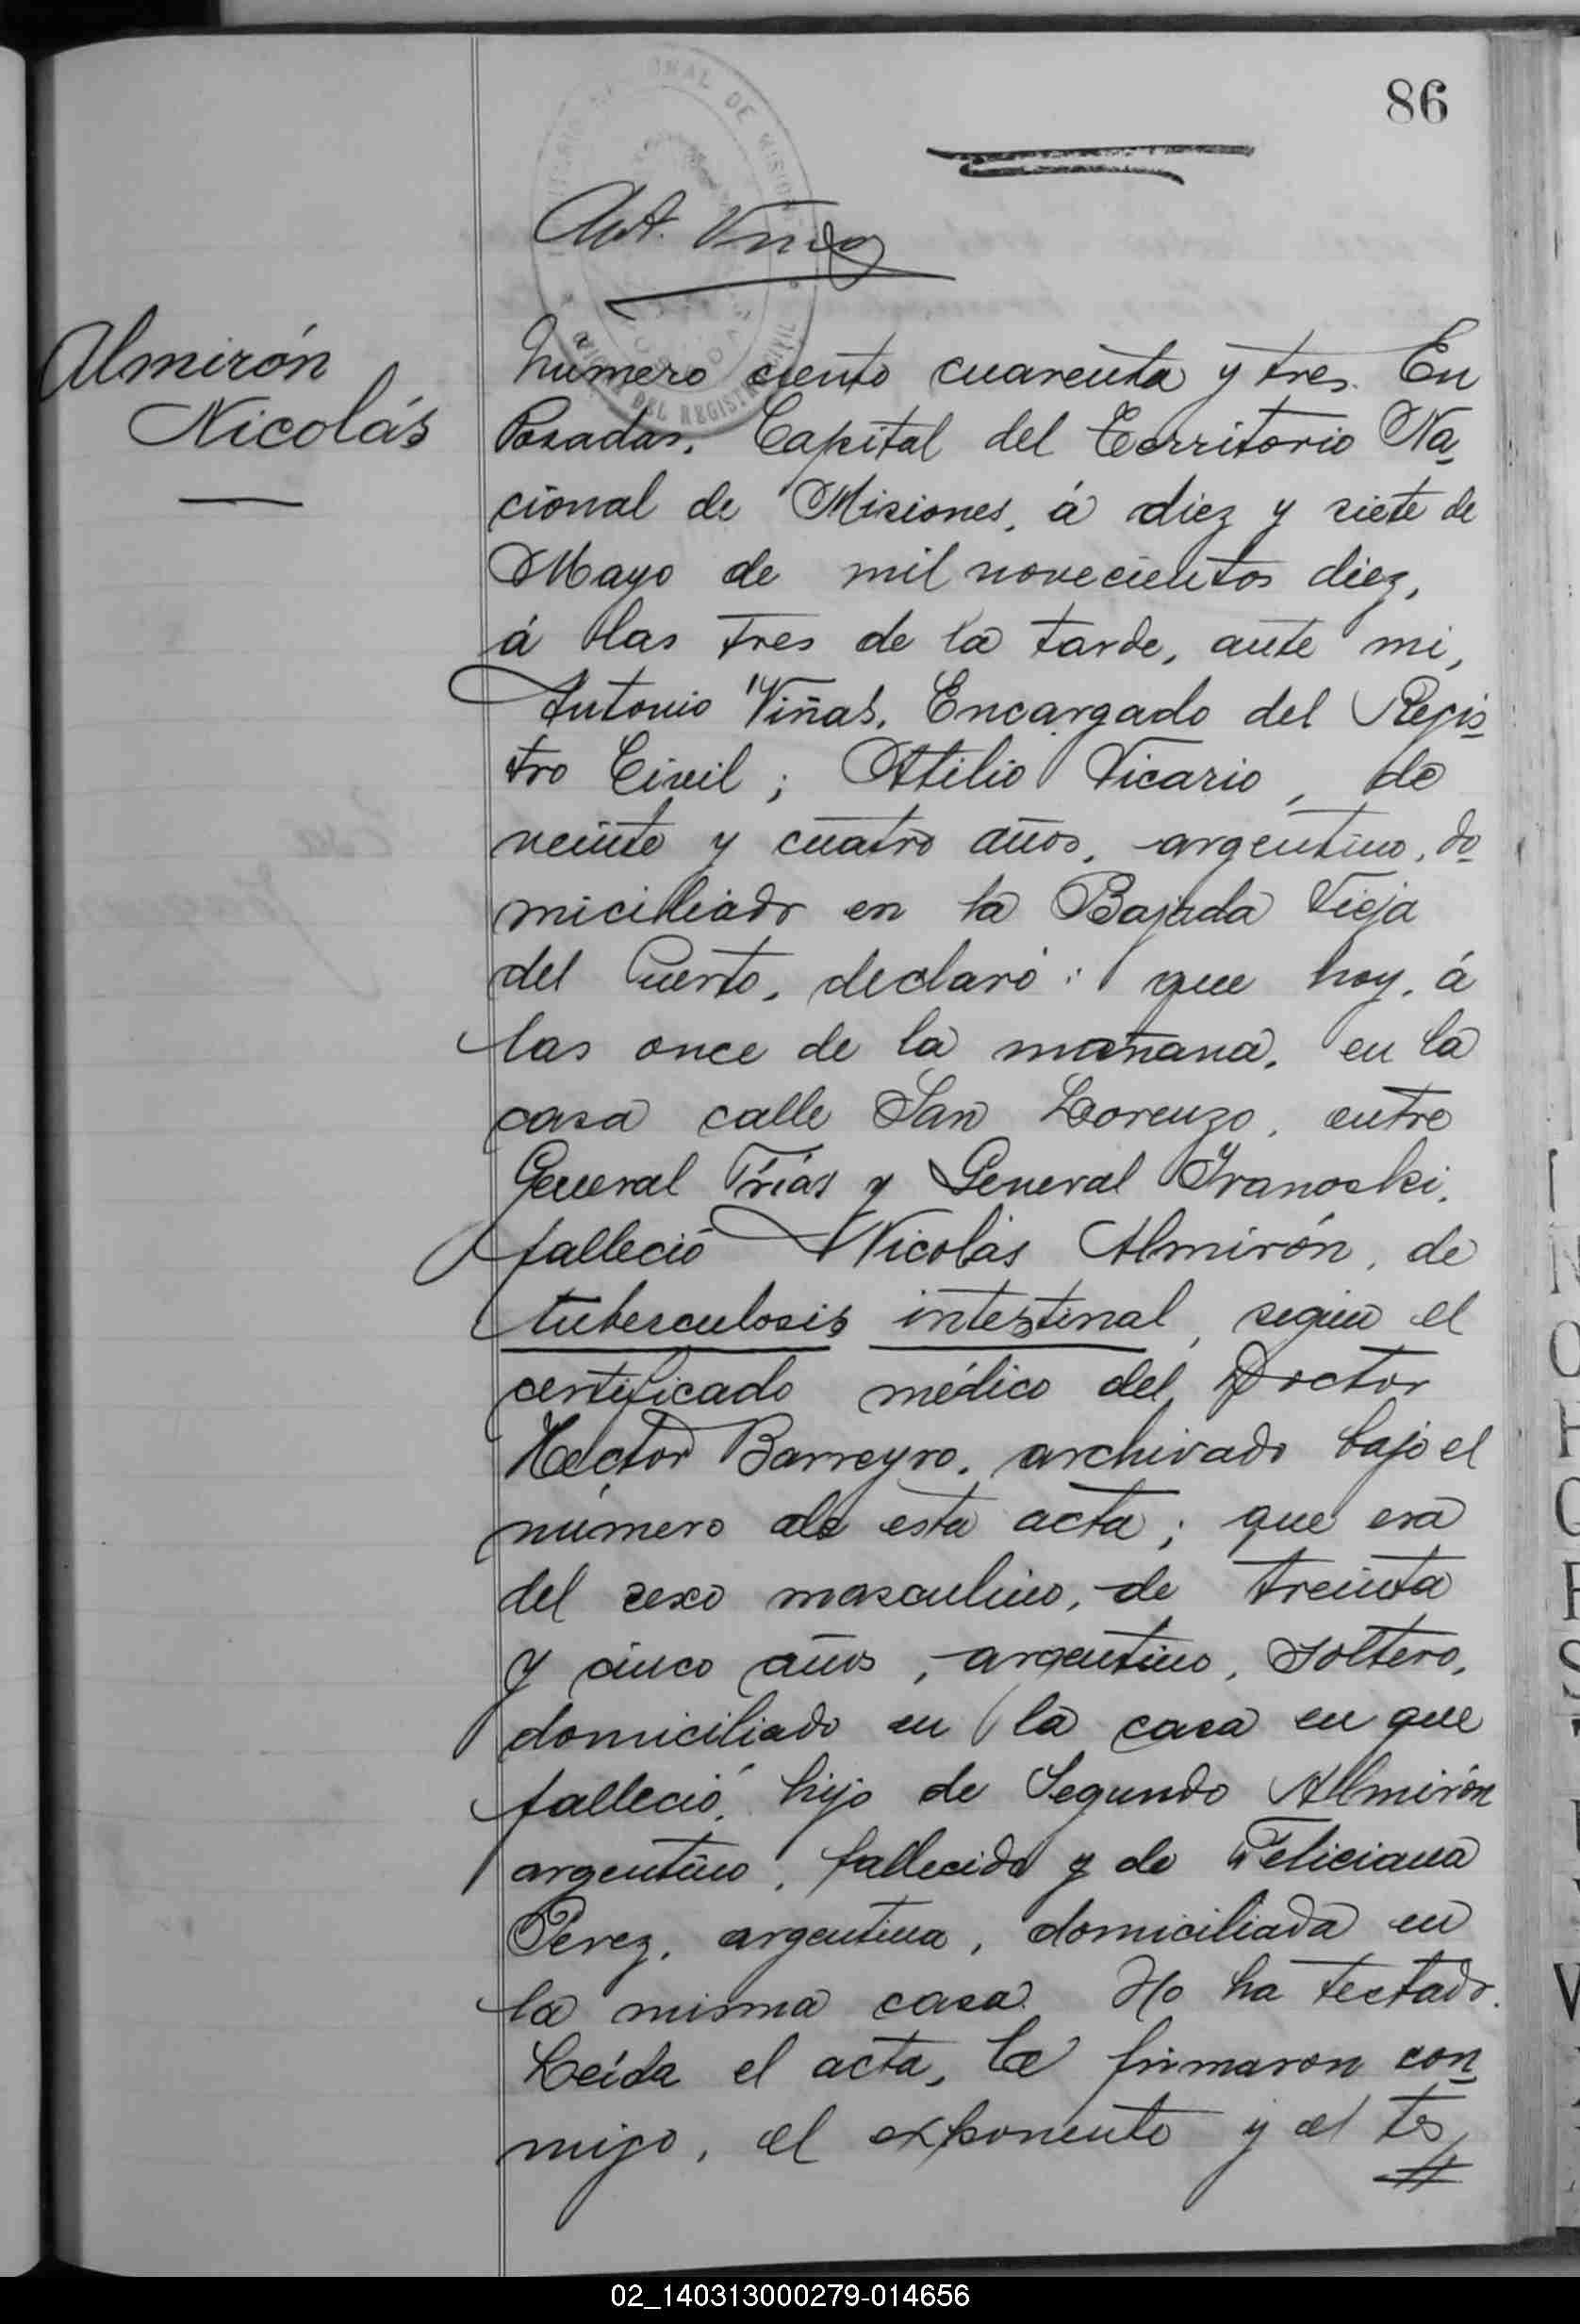 86
Ant. Viñas
Almirón
Nicolás
Número ciento cuarenta y tres. En
Posadas, Capital del Territorio Na-
cional de Misiones, á diez y siete de
Mayo de mil novecientos diez,
á las tres de la tarde, ante mi,
Antonio Viñas, Encargado del Regis-
tro Civil; Atilio Vicario, de
veinte y cuatro años, argentino, do-
miciliado en la Bajada Vieja
del Puerto, declaró: que hoy, á
las once de la mañana, en la
casa calle San Lorenzo, entre
General Frías y General Ivanoski,
falleció Nicolás Almirón, de
tuberculosis intestinal, según el
certificado médico del Doctor
Hector Barreyro, archivado bajo el
número de esta acta; que era
del sexo masculino, de treinta
y cinco años, argentino, soltero,
domiciliado en la casa en que
falleció, hijo de Segundo Almirón
argentino, fallecido y de Feliciana
Perez, argentina, domiciliada en
la misma casa. No ha testado.
Leída el acta, la firmaron con-
migo, el exponente y el tes
OFICINA DEL REGISTRO CIVIL
02_140313000279-014656